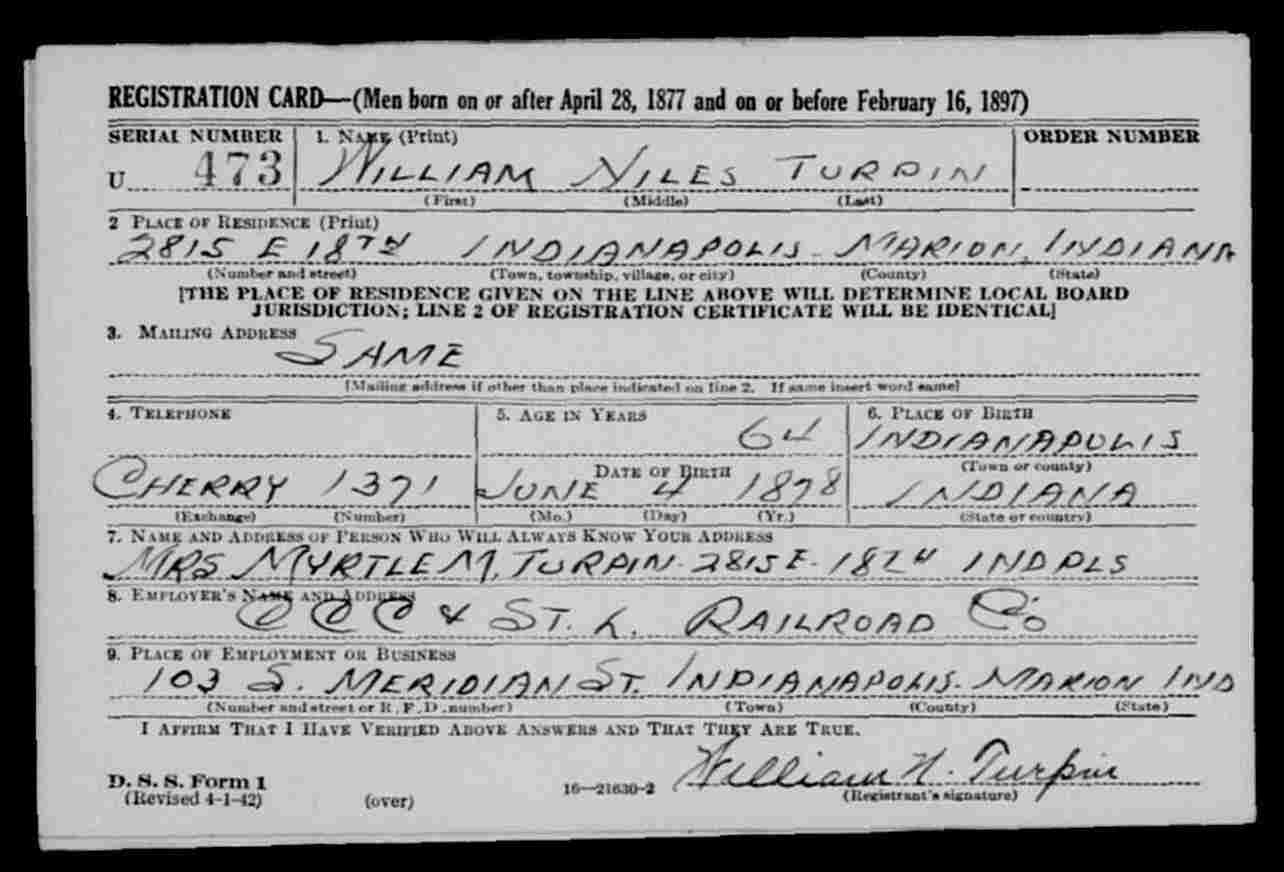 REGISTRATION CARD—(Men born on or after April 28, 1877 and on or before February 16, 1897)
SERIAL NUMBER 1. NAME (Print) ORDER NUMBER
U 473 WILLIAM NILES TURPIN
(First) (Middle) (Last)
2 PLACE OF RESIDENCE (Print)
2815 E 18TH INDIANAPOLIS MARION, INDIANA
(Number and street) (Town, township, village, or city) (County) (State)
[THE PLACE OF RESIDENCE GIVEN ON THE LINE ABOVE WILL DETERMINE LOCAL BOARD
JURISDICTION; LINE 2 OF REGISTRATION CERTIFICATE WILL BE IDENTICAL]
3. MAILING ADDRESS
SAME
[Mailing address if other than place indicated on line 2. If same insert word same]
4. TELEPHONE 5. AGE IN YEARS 6. PLACE OF BIRTH
64 INDIANAPOLIS
DATE OF BIRTH (Town or county)
CHERRY 1371 JUNE 4 1878 INDIANA
(Exchange) (Number) (Mo.) (Day) (Yr.) (State or country)
7. NAME AND ADDRESS OF PERSON WHO WILL ALWAYS KNOW YOUR ADDRESS
MRS MYRTLE M. TURPIN. 2815 E. 18TH INDPLS
8. EMPLOYER'S NAME AND ADDRESS
C C C & ST. L. RAILROAD Co
9. PLACE OF EMPLOYMENT OR BUSINESS
103 S. MERIDIAN ST. INDIANAPOLIS. MARION IND
(Number and street or R. F. D. number) (Town) (County) (State)
I AFFIRM THAT I HAVE VERIFIED ABOVE ANSWERS AND THAT THEY ARE TRUE.
William N. Turpin
D. S. S. Form 1
(Revised 4-1-42) (over) 16—21630-2 (Registrant's signature)